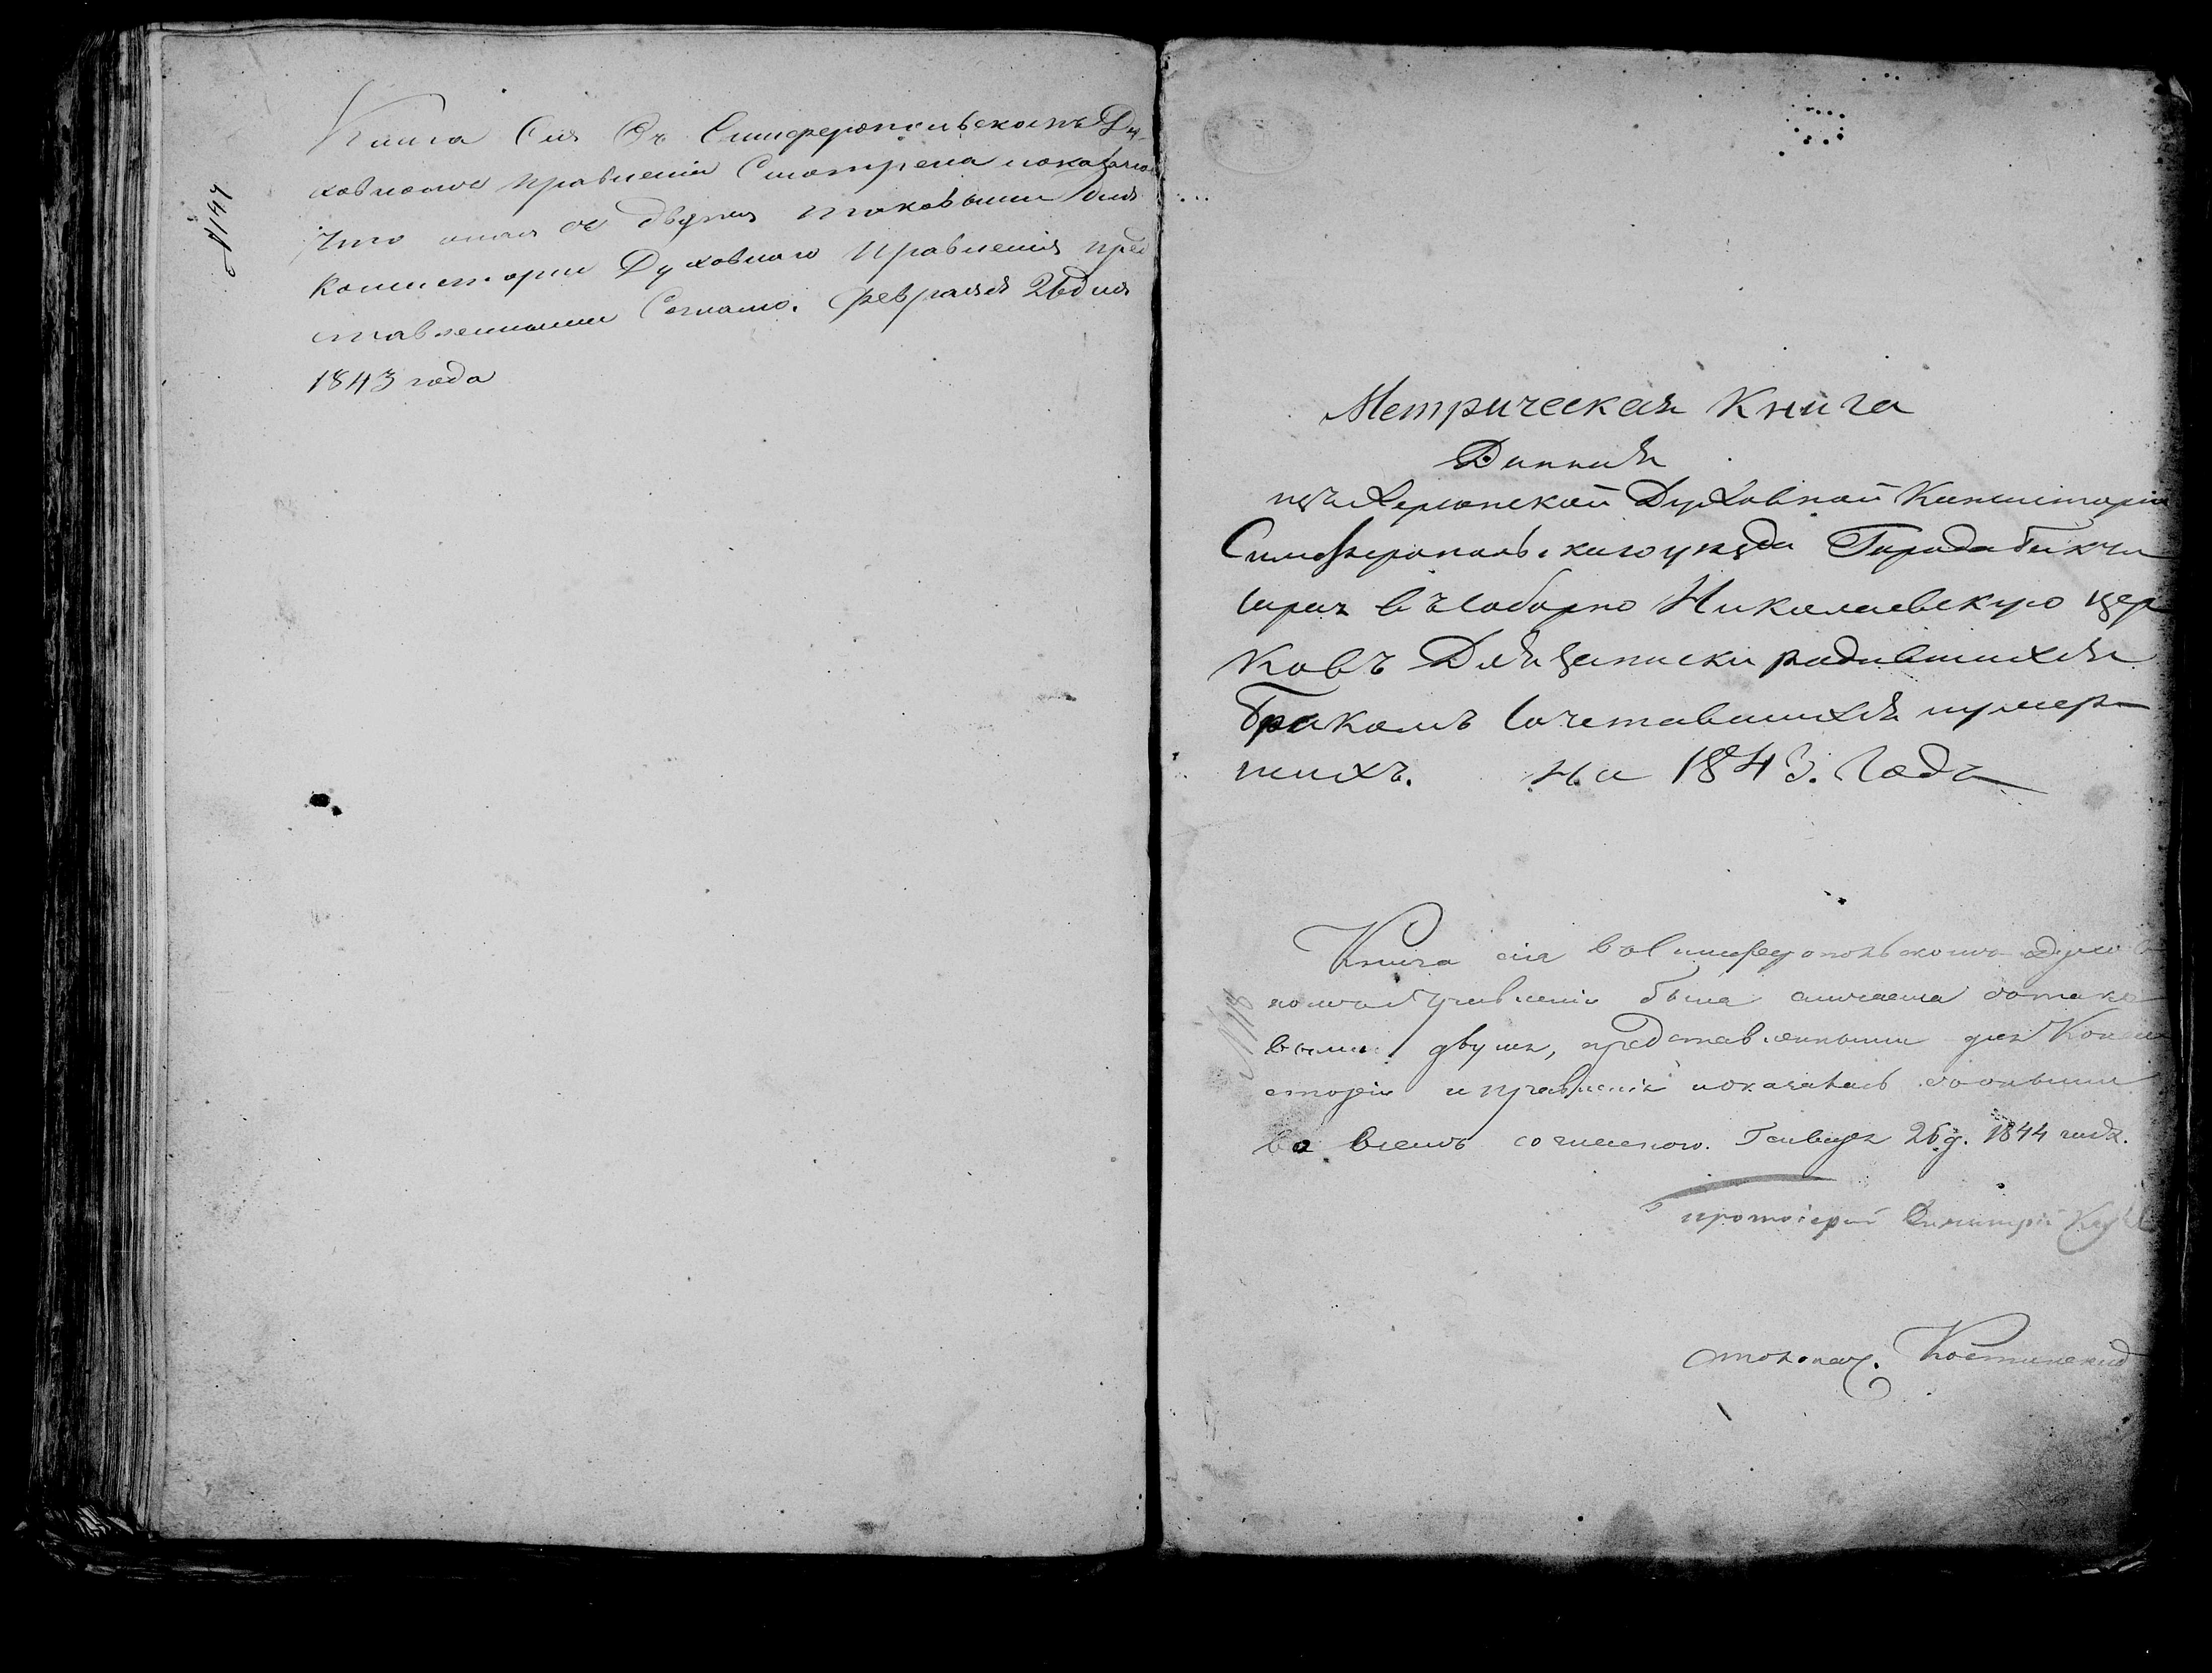 Книга Сия Въ Симферопольскомъ Ду-
ховномъ правленіи Смотрена
что оная съ двумя таковыми для
Консисторіи Духовного Правленія пред
ставленными Согласно. Февраля 26 дня
1843 года
Метрическая Книга
Данная
изъ Херсонской Духовной Консисторіи
Симферопольскаго уезда Города Бахчи
сарая въ Соборно Николаевскую цер
ковъ Для записки родившихся
Бракомъ Сочетавшихся иумер-
шихъ. На 1843. Годъ
Книга сія въ Симферопольскомъ духов
номъ Правленіи была сличаема сътако
выми двумя, представленными для Конси
сторіи и правленія и оказалась съоными
во всемъ согласною. Генваря 26 д. 1844 года.
протоіерей Димитрій
столонач. Костинскій